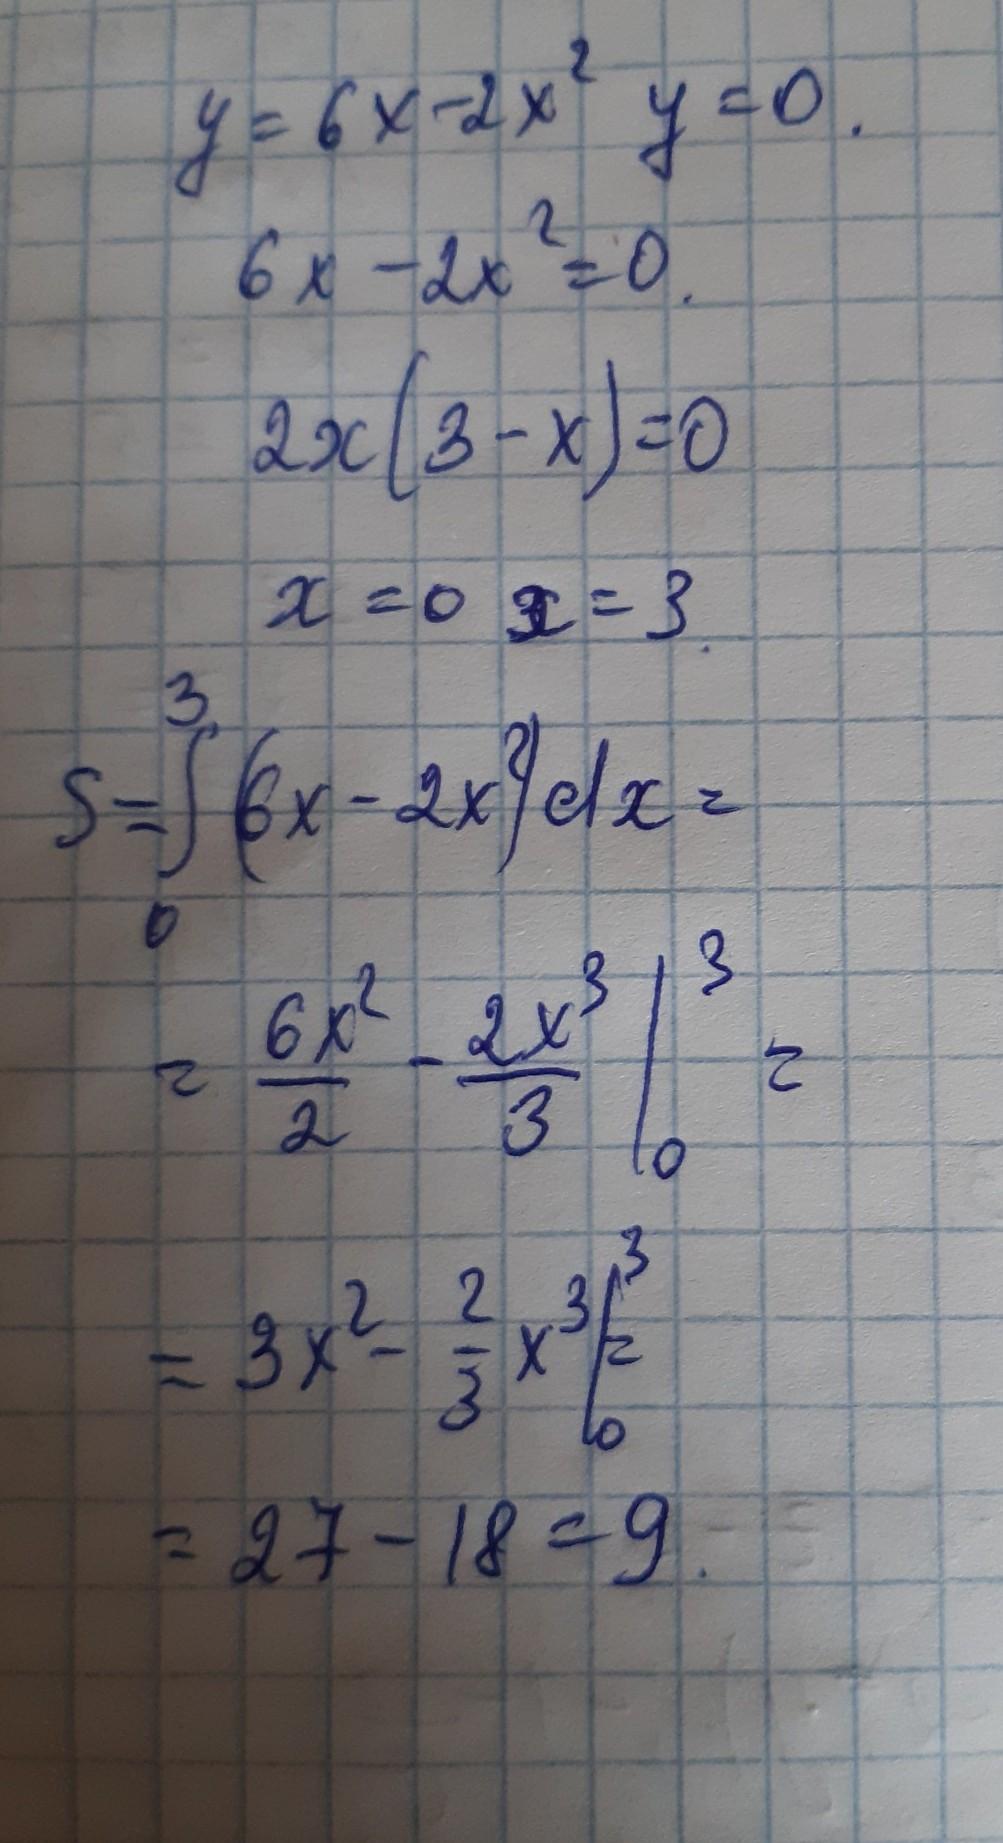 y = 6x - 2x² y = 0.
6x - 2x² = 0.
2x(3 - x) = 0
x = 0 x = 3.
S = ∫₀³ (6x - 2x²)dx =
= 6x²/2 - 2x³/3 |₀³ =
= 3x² - 2/3 x³ |₀³ =
= 27 - 18 = 9.